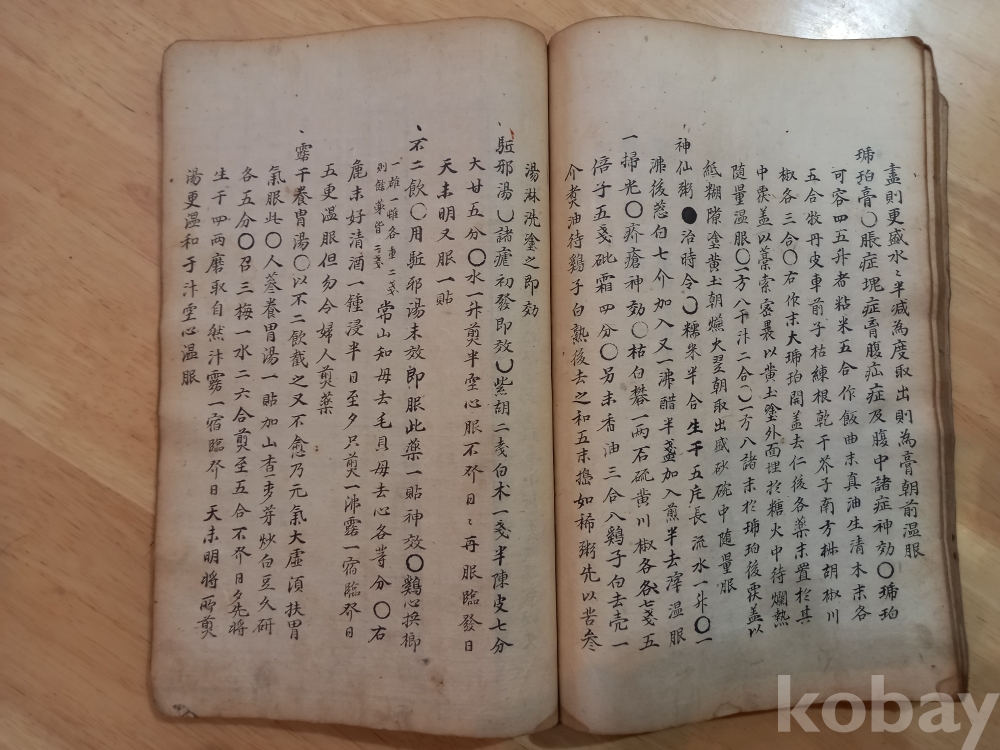 盡則更盛水〻半减為度取出則為膏朝前温服
琥珀膏〇脹症塊症脊腹症症及腹中諸症神効〇琥珀
可容四五升者粘米五合作飯曲末真油生清本末各
五合牧丹皮車前子枯練根乾干芥子南方椒胡椒川
椒各三合〇右作末大琥珀開盖去仁後各藥末置於其
中覆盖以藁索密裹以黃土塗外面埋於糖火中待爛熟
随量温服〇一方八干汁二合〇一方八諸末於琥珀後覆盖以
紙糊隙塗黃土朝爇火翌朝取出盛砂碗中随量服
神仙粥●治時令〇糯米半合生干五片長流水一升〇一
沸後葱白七介加入又一沸醋半盞加入煎半去滓温服
一掃光〇疥瘡神効〇枯白礬一两石硫黃川椒各七戔五
倍子五戔砒霜四分〇另末香油三合入鷄子白去壳一
介煑油待鷄子白熟後去之和五末搗如稀粥先以苦参
湯淋洗塗之即効
駈邪湯〇諸瘧初發即效〇紫胡二戔白术一戔半陳皮七分
大甘五分〇水一升煎半空心服不癸日〻再服臨發日
天未明又服一貼
不二飲〇用駈邪湯未效即服此藥一貼神效〇鷄心梹榔
一雌一雄各重二戔
則餘藥皆二戔
常山知母去毛貝母去心各等分〇右
麁末好清酒一鍾浸半日至夕只煎一沸露一宿臨癸日
五更温服但勿令婦人煎藥
露干養胃湯〇以不二飲截之又不愈乃元氣大虛湏扶胃
氣服此〇人蔘養胃湯一貼加山查麥芽炒白豆久研
各五分〇召三梅一水二六合煎至五合不癸日夕先將
生干四两磨取自然汁露一宿臨癸日天未明將所煎
湯更温和于汁空心温服
kobay